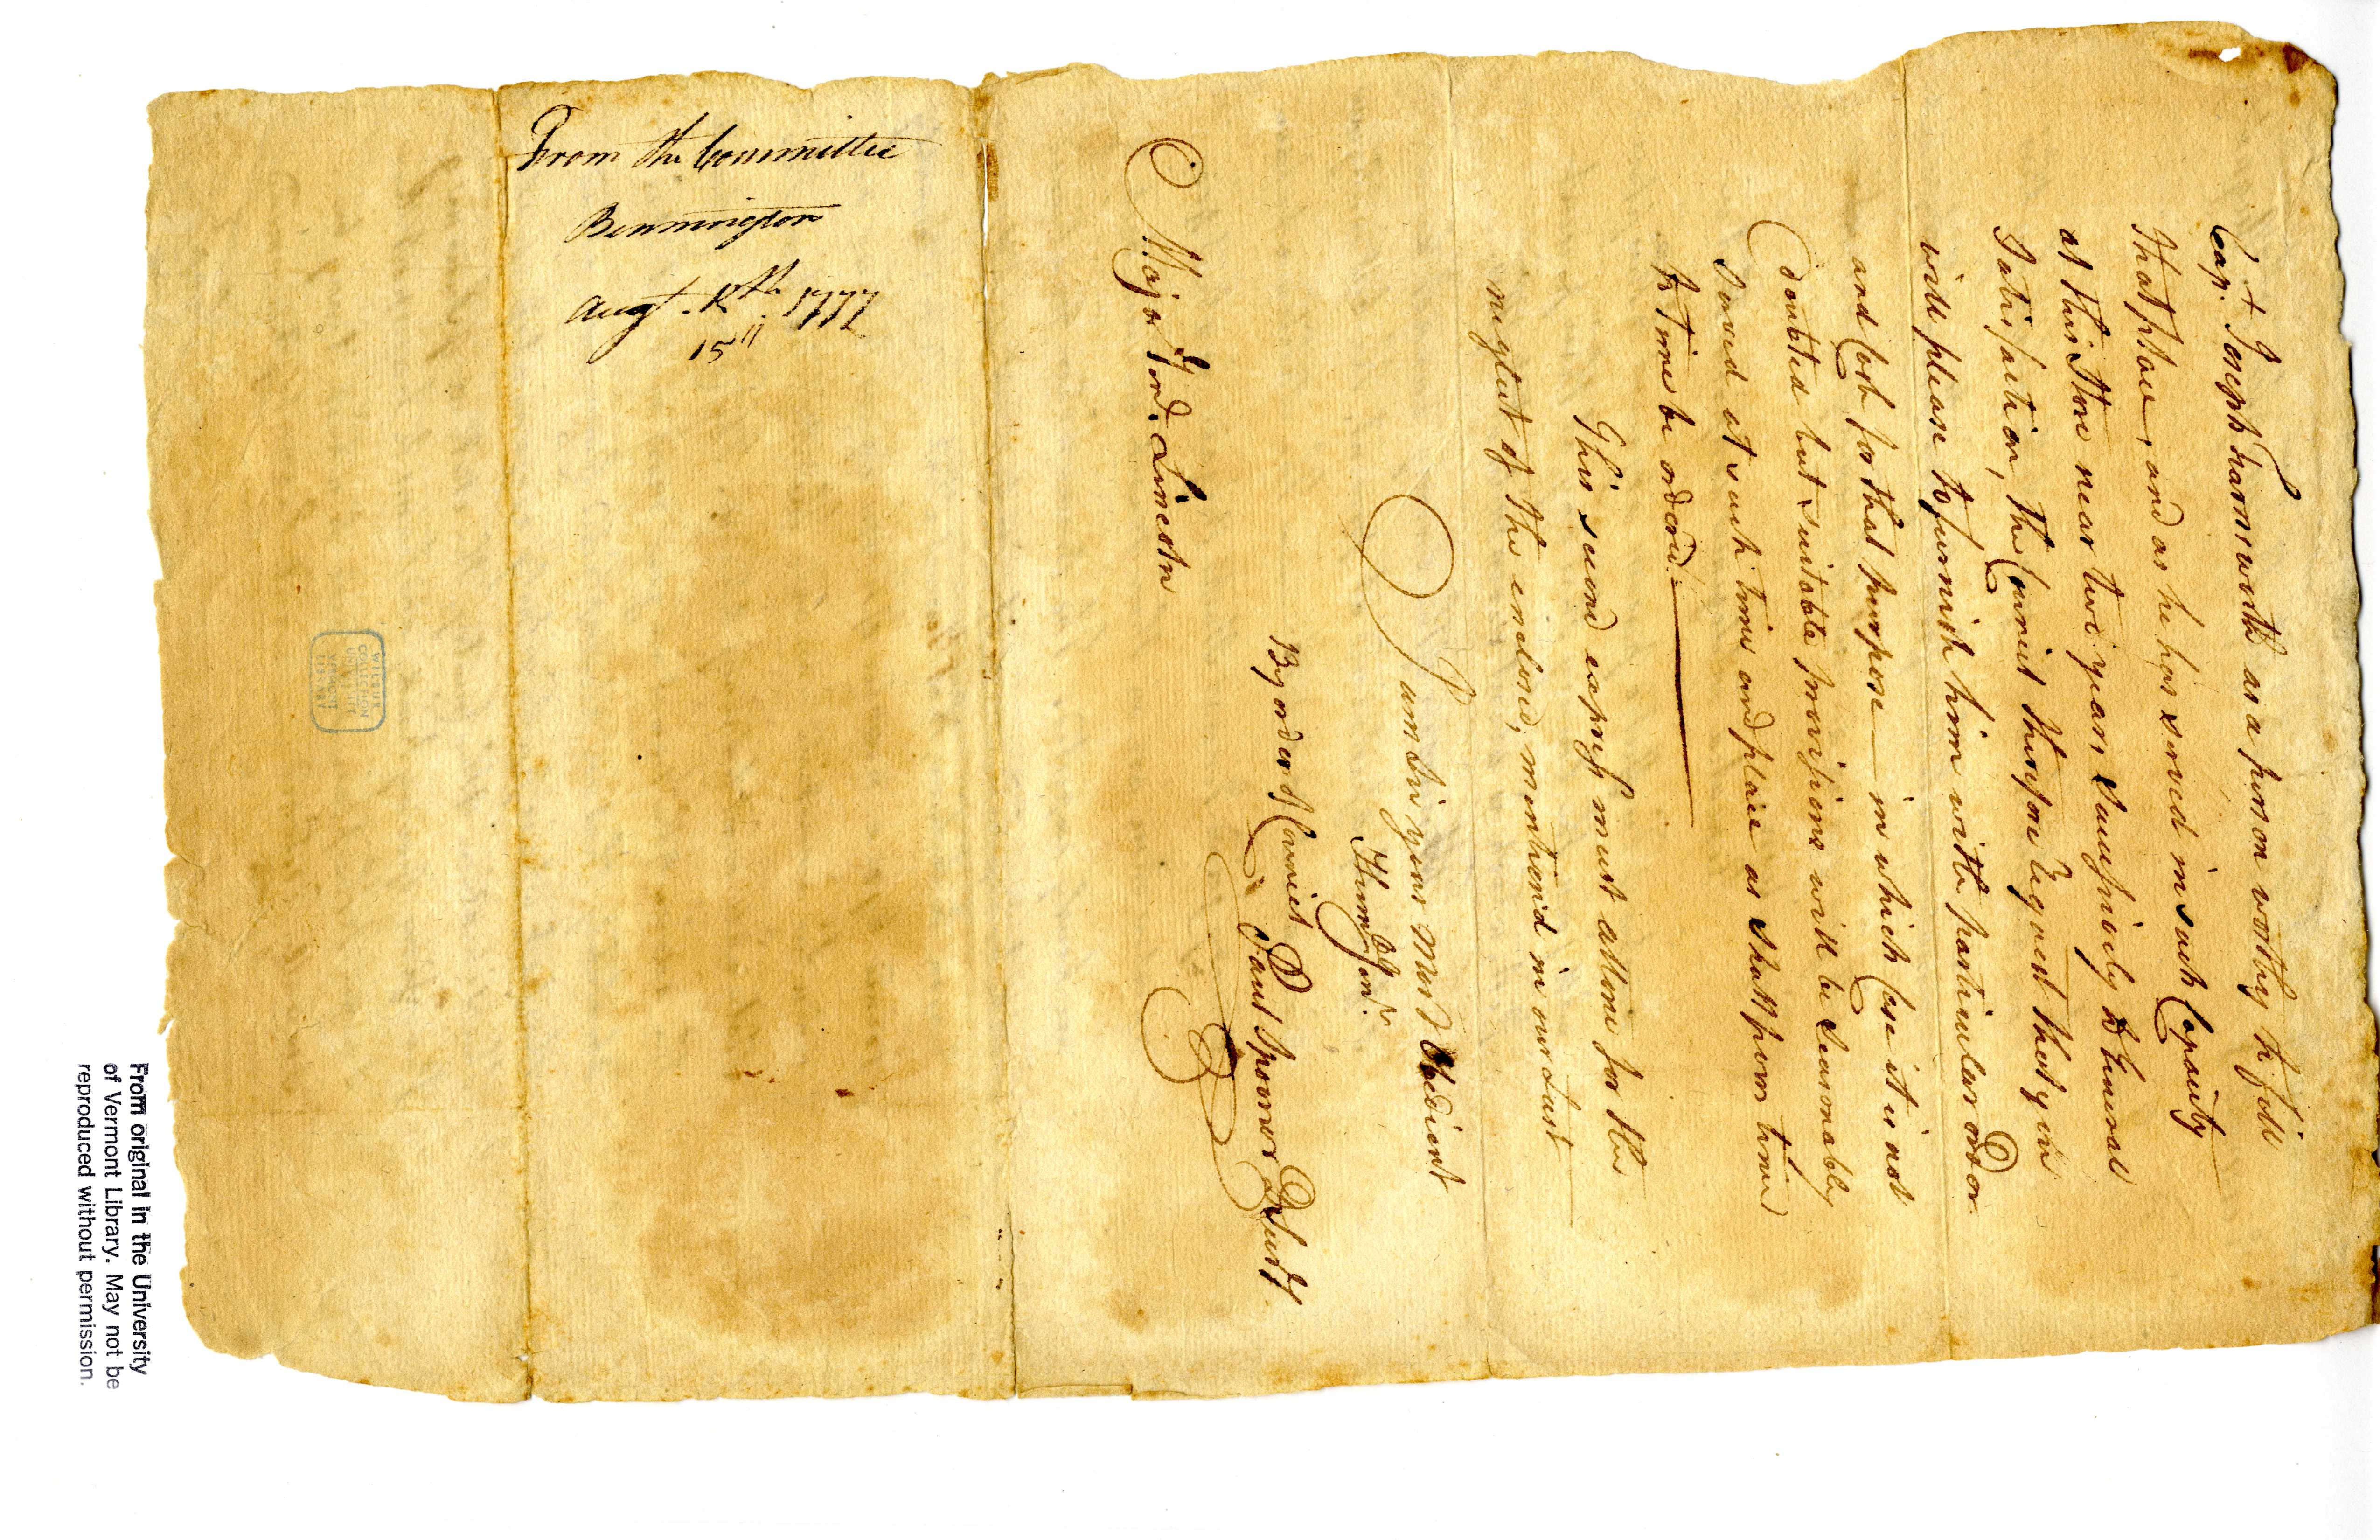 Capt. Joseph Farnsworth as a person worthy to fill
that place, and as he has served in such Capacity
at this Store near two years Successively to General
Satisfaction, The Council therefore Request that you
will please to furnish him with particular order
and Cash for that purpose — in which Case it is not
doubted but suitable provisions will be Seasonably
Stored at such times and place as shall from time
to time be ordered.
This second express must attone for the
neglect of the enclosed, mentioned in our Last
I am Sir your most Obedient
Humbl Servt
By order of Council
Paul Spooner D Secry
Major Genl. Lincoln
From the Committee
Bennington
Augt. 15th 1777
15th
WILBUR
COLLECTION
UNIV. OF
VERMONT
LIBRARY
From original in the University
of Vermont Library. May not be
reproduced without permission.